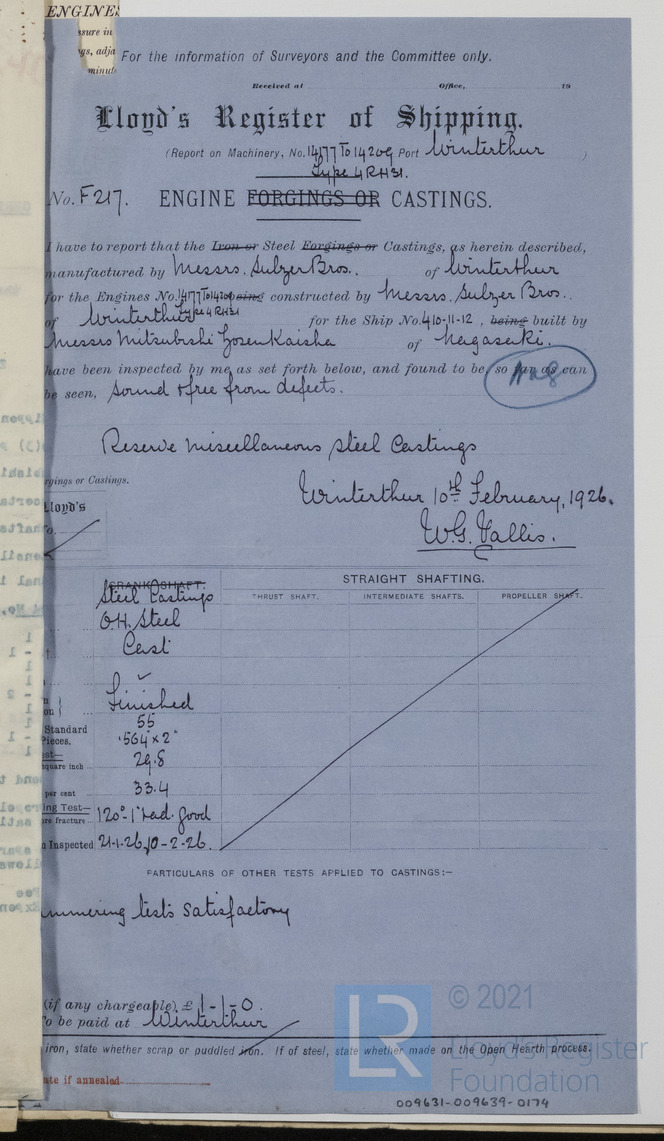 ENGINES
ssure in
gs, adja
minut
For the information of Surveyors and the Committee only.
Received at Office, 19
Lloyd's Register of Shipping.
(Report on Machinery, No. 14177 To 14209 Port Winterthur )
Type 4RH31.
No. F217. ENGINE FORGINGS OR CASTINGS.
I have to report that the Iron or Steel Forgings or Castings, as herein described,
manufactured by Messrs. Sulzer Bros.. of Winterthur
for the Engines No. 14177 To 14209 being constructed by Messrs. Sulzer Bros..
Type 4RH31
of Winterthur for the Ship No. 410-11-12 , being built by
Messrs Mitsubishi Zosen Kaisha of Nagasaki.
have been inspected by me, as set forth below, and found to be, so far as can
be seen, sound & free from defects.
Reserve Miscellaneous Steel Castings
rgings or Castings.
Winterthur 10th February, 1926.
Lloyd's
W.G. Vallis.
CRANK SHAFT. STRAIGHT SHAFTING.
Steel Castings THRUST SHAFT. INTERMEDIATE SHAFTS. PROPELLER SHAFT.
O.H. Steel
Cast
Finished
55
Standard
Pieces. .564" x 2"
est—
square inch 29.8
per cent 33.4
ing Test—
re fracture 120°-1" rad. good
Inspected 21-1-26, 10-2-26.
PARTICULARS OF OTHER TESTS APPLIED TO CASTINGS:—
mmering tests satisfactory
(if any chargeable) £ 1-1-0.
To be paid at Winterthur
iron, state whether scrap or puddled iron. If of steel, state whether made on the Open Hearth process.
ate if annealed
LR © 2021
Lloyd's Register
Foundation
009631-009639-0174